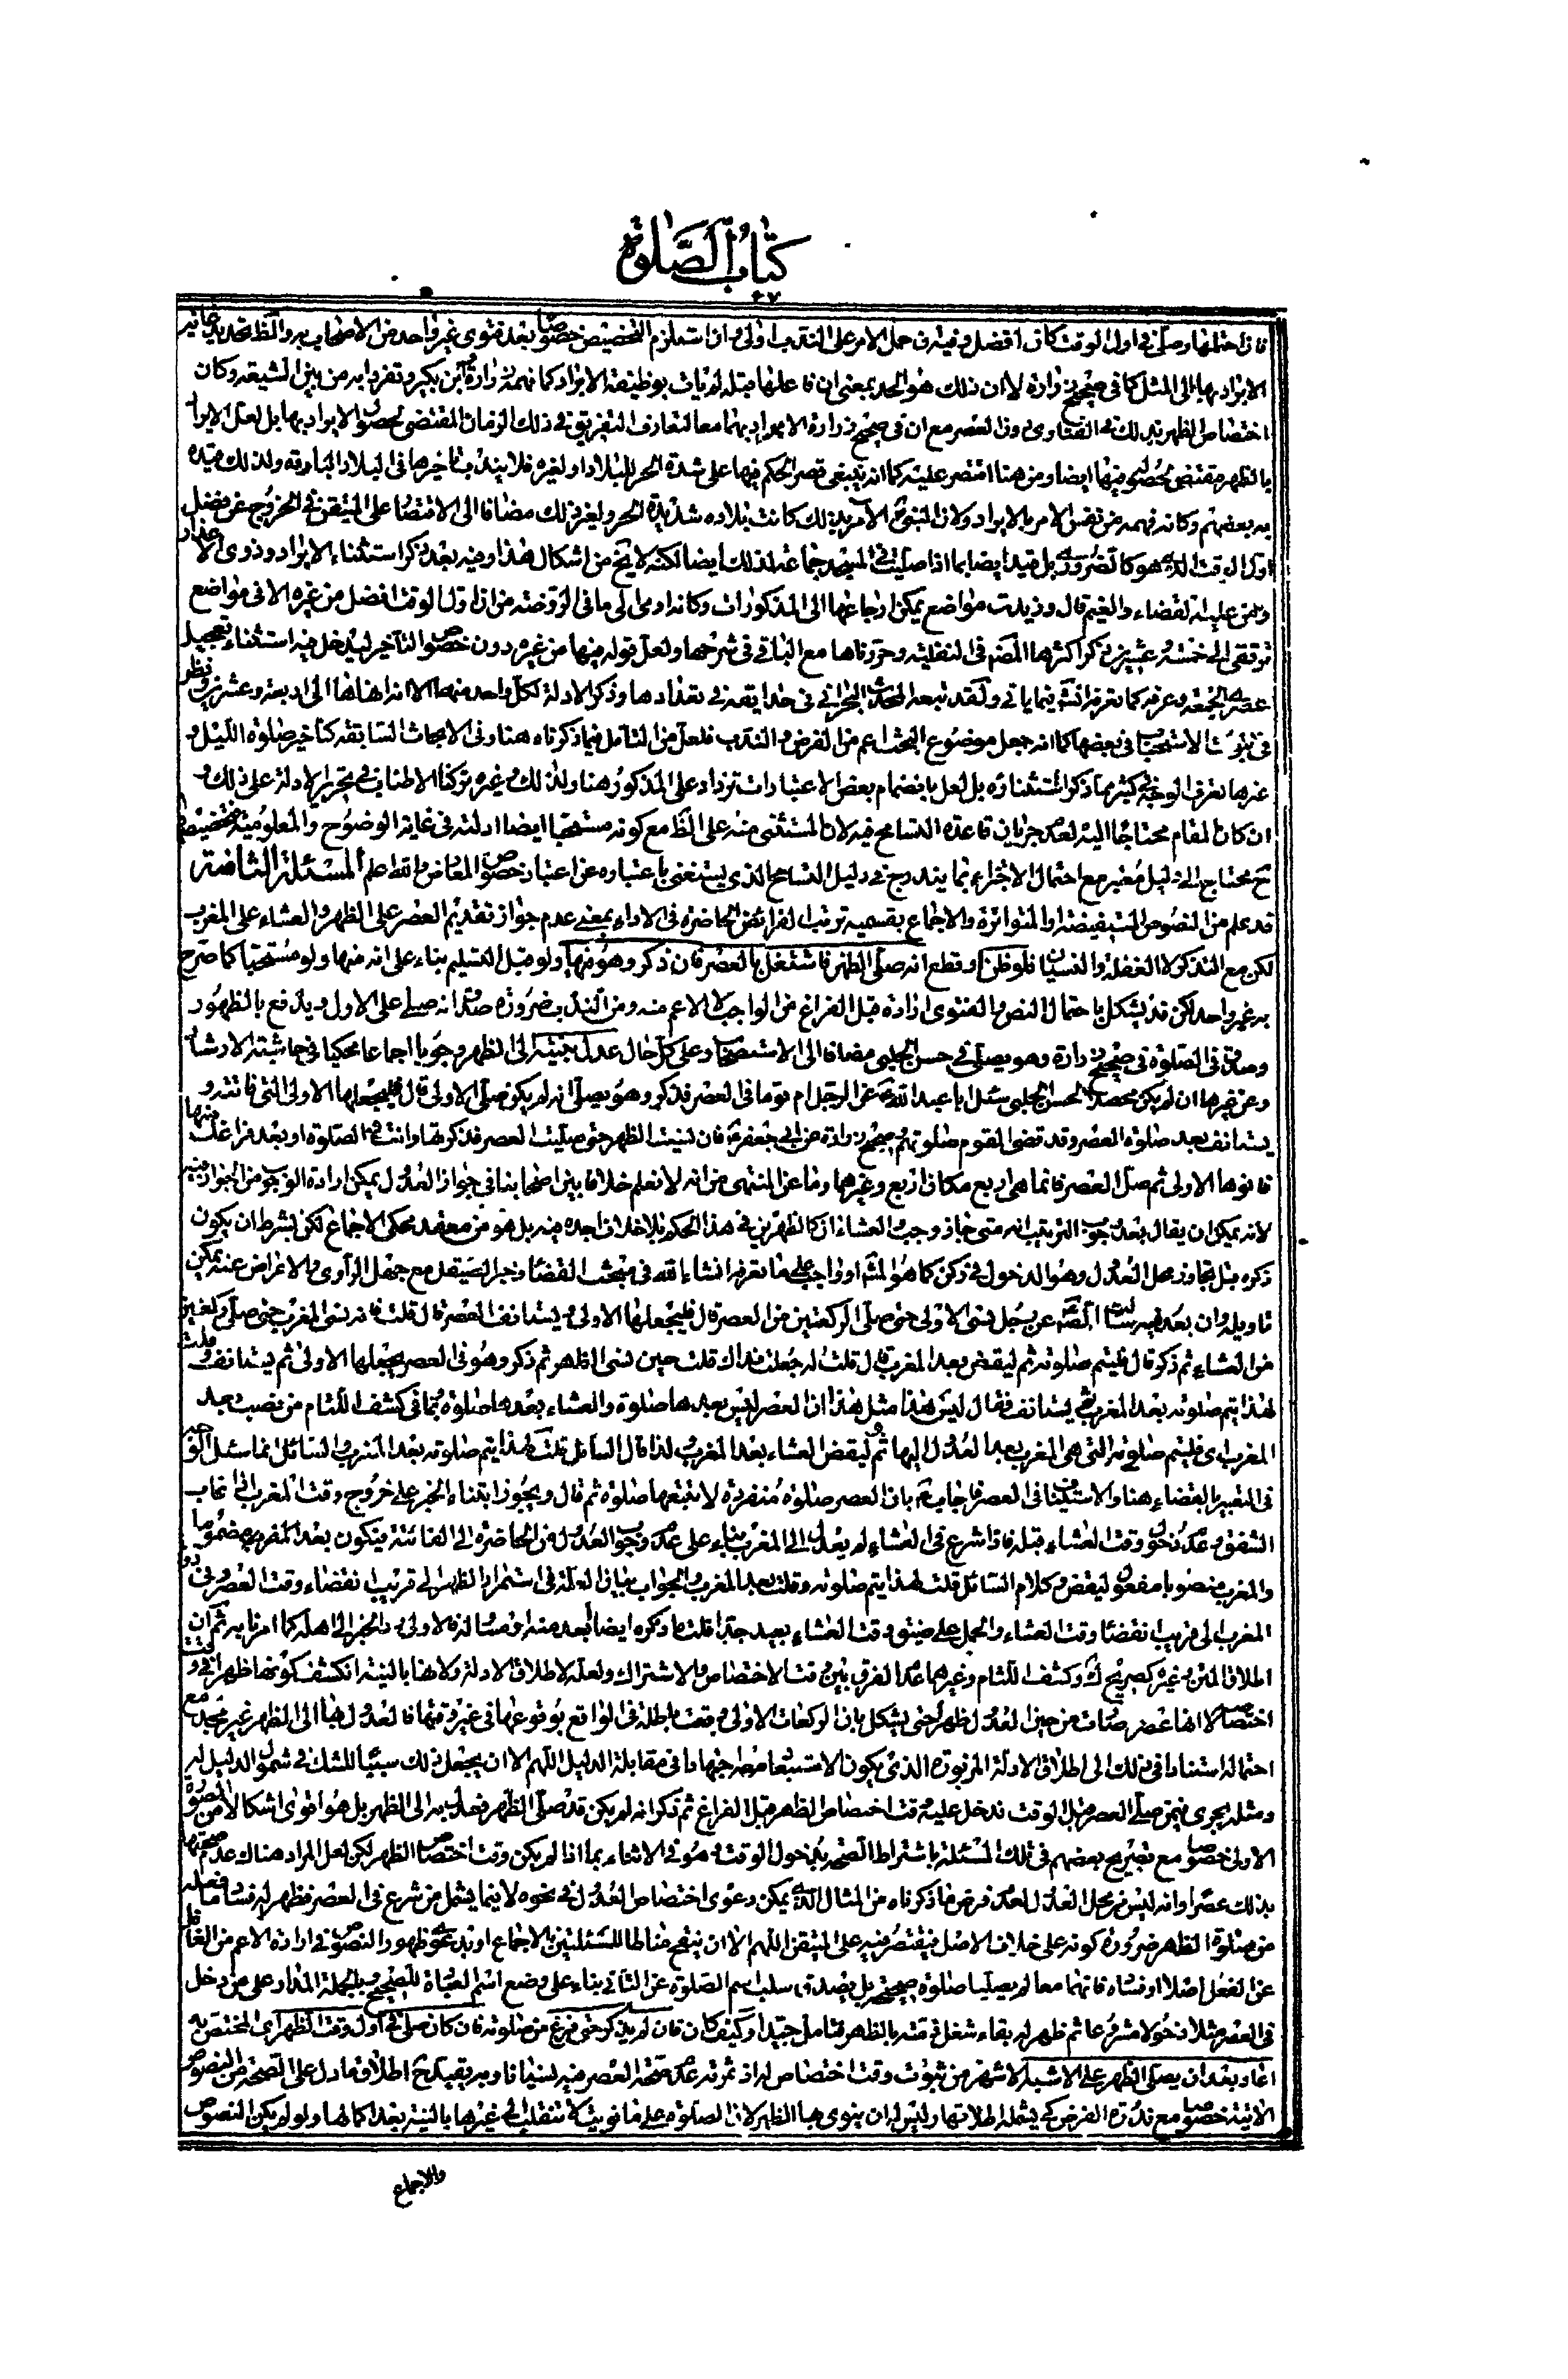 كتاب الصلوة
٤٧
فان احتملها وصلى فى اول الوقت كان افضل وفيه ان حمل الامر على الندب اولى وان استلزم التخصيص خصوصا بعد فتوى غير واحد من الاصحاب به والظ تحديد غاية
الابراد بها الى المثل كما فى صحيح زرارة لا ان ذلك هو الحد بمعنى ان فاعلها قبله لم يات بوظيفة الابراد كما فهمه زرارة وابن بكير وتفردا به من بين الشيعة وكان
اختصاص الظهر بذلك فى الفتاوى دون العصر مع ان فى صحيح زرارة الابراد بهما معا لتعارف التفريق فى ذلك الزمان المقتضى لحصول الابراد بها بل لعل الابراد
بالظهر مقتض لحصوله فيها ايضا ومن هنا اقتصر عليه كما انه ينبغى قصر الحكم فيها على شدة الحر للبلاد او لغيره فلا يندب تاخيرها فى البلاد الباردة ولذلك قيده
به بعضهم وكانه فهمه من نفس الامر بالابراد ولان النبى ص الآمر بذلك كانت بلاده شديدة الحر ولغير ذلك مضافا الى الاقتصار على المتيقن فى الخروج عن فضل
اول الوقت الذى هو كالضرورى بل قيد ايضا بما اذا صليت فى المسجد جماعة لذلك ايضا لكنه لا يخ من اشكال هذا وفيه بعد ذكر استثناء الابراد وذوى الاعذار
ومن عليه القضاء والغيم قال وزيدت مواضع يمكن ارجاعها الى المذكورات وكانه اومى الى ما فى الروضة من ان اول الوقت افضل من غيره الا فى مواضع
ترتقى الى خمسة وعشرين ذكر اكثرها المصنف فى النفلية وحررناها مع الباقى فى شرحها ولعل قوله فيها من غيره دون خصوص التأخير ليدخل فيه استثناء تعجيل
عصرى الجمعة وعرفة كما تعرفه انش فيما ياتى ولقد تبعه المحدث البحرانى فى حدايقه فى تعدادها وذكر الادلة لكل واحد منها الا انه انهاها الى اربعة وعشرين ونظر
فى ثبوت الاستحباب فى بعضها كما انه جعل موضوع البحث اعم من الفرض والندب فلعل من التامل فيما ذكرناه هنا وفى الابحاث السابقة كتاخير صلوة الليل و
غيرها تعرف الوجه فى كثير مما ذكر استثناؤه بل لعل بانضمام بعض الاعتبارات تزداد على المذكور هنا ولذلك وغيره تركنا الاطناب فى تحرير الادلة على ذلك و
ان كان المقام محتاجا اليه لعدم جريان قاعدة التسامح فيه لان المستثنى منه على الظ مع كونه مستحبا ايضا ادلته فى غاية الوضوح والمعلومية فتخصيصها
ح محتاج الى دليل معتبر مع احتمال الاجتزاء بما يندرج فى دليل التسامح الذى يستغنى باعتباره عن اعتبار خصوص المعارض والله اعلم المسئلة الثامنة
قد علم من النصوص المستفيضة او المتواترة والاجماع بقسميه ترتب الفرائض الحاضرة فى الاداء بمعنى عدم جواز تقديم العصر على الظهر والعشاء على المغرب
لكن مع التذكر لا الغفلة والنسيان فلو ظن او قطع انه صلى الظهر فاشتغل بالعصر فان ذكر وهو فيها ولو قبل التسليم بناء على انه منها ولو مستحبا كما صرح
به غير واحد لكن قد يشكل باحتمال النص والفتوى ارادة قبل الفراغ من الواجب لا الاعم منه ومن الندب ضرورة صدق انه صلى على الاول ويدفع بالظهور
وصدق فى الصلوة فى صحيح زرارة وهو يصلى فى حسن الحلبى مضافا الى الاستصحاب وعلى كل حال عدل بنيته الى الظهر وجوبا اجماعا محكيا فى حاشية الارشاد
وعن غيرها ان لم يكن محصلا لحسن الحلبى سئل ابا عبد الله ع عن الرجل ام قوما فى العصر فذكر وهو يصلى انه لم يكن صلى الاولى قال فليجعلها الاولى التى فاتته و
يستانف بعد صلوة العصر وقد قضى القوم صلوتهم وصحيح زرارة عن ابى جعفر ع فان نسيت الظهر حتى صليت العصر فذكرتها وانت فى الصلوة او بعد فراغك منها
فانوها الاولى ثم صل العصر فانما هى اربع مكان اربع وغيرهما وما عن المنتهى من انه لا نعلم خلافا بين اصحابنا فى جواز العدول يمكن ارادة الوجوب من الجواز فيه
لانه يمكن ان يقال بعد وجوب الترتيب انه متى جاز وجب والعشاءان كالظهرين فى هذا الحكم بلا خلاف اجده فيه بل هو من معقد محكى الاجماع لكن بشرط ان يكون
ذكره قبل تجاوز محل العدول وهو الدخول فى ركن كما هو المش او واجب على ما تعرفه انشاء الله فى مبحث القضاء وخبر الصيقل مع جهل الراوى والاعراض عنه يمكن
تاويله وان بعد فيه سئلت الص ع عن رجل نسى الاولى حتى صلى الركعتين من العصر قال فليجعلها الاولى وليستانف العصر قال قلت فانه نسى المغرب حتى صلى ركعتين
من العشاء ثم ذكر قال فليتم صلوته ثم ليقض بعد المغرب قال قلت له جعلت فداك قلت حين نسى الظهر ثم ذكر وهو فى العصر يجعلها الاولى ثم يستانف وقلت
لهذا يتم صلوته بعد المغرب ثم يستانف فقال ليس هذا مثل هذا ان العصر ليس بعدها صلوة والعشاء بعدها صلوة بما فى كشف اللثام من نصب بعد
المغرب اى فليتم صلوته التى هى المغرب بعد العدول اليها ثم ليقض العشاء بعد المغرب ولذا قال السائل قلت لهذا يتم صلوته بعد المغرب والسائل انما سئل الوجه
فى التعبير بالقضاء هنا والاستيناف فى العصر فاجاب ع بان العصر صلوة منفردة لا تتبعها صلوة ثم قال ويجوز ابتناء الخبر على خروج وقت المغرب اذا غاب
الشفق وعدم دخول وقت العشاء قبله فاذا شرع فى العشاء لم يعدل الى المغرب بناء على عدم وجوب العدول من الحاضرة الى الفائتة فيكون بعد المفرد مضموما
والمغرب منصوبا مفعول ليقض وكلام السائل قلت لهذا يتم صلوته وقلت بعد المغرب والجواب بيان العلة فى استمرار الظهر الى قريب انقضاء وقت العصر دون
المغرب الى قريب انقضاء وقت العشاء والحمل على ضيق وقت العشاء بعيد جدا قلت ما ذكره ايضا بعيد منه او مساله فالاولى رد الخبر الى اهله كما امرنا به ثم ان
اطلاق المتن وغيره كصريح ك وكشف اللثام وغيرهما عدم الفرق بين وقت الاختصاص والاشتراك ولعله لاطلاق الادلة ولانها بالنية انكشف كونها ظهرا فى وقت
اختصاصه لا انها عصر صارت من حين العدول ظهرا حتى يشكل بان الركعات الاولى وقعت باطلة فى الواقع بوقوعها فى غير وقتها فالعدول بها الى الظهر غير مجد مع
احتماله استنادا فى ذلك الى اطلاق الادلة المزبورة الذى يكون الاستبعاد معه اجتهادا فى مقابلة الدليل اللهم الا ان يجعل ذلك سببا للشك فى شمول الدليل له
ومثله يجرى فيمن صلى العصر قبل الوقت فدخل عليه وقت اختصاص الظهر قبل الفراغ ثم ذكر انه لم يكن قد صلى الظهر فعدل به الى الظهر بل هو اقوى اشكالا من الصورة
الاولى خصوصا مع تصريح بعضهم فى تلك المسئلة باشتراط الصحة بدخول الوقت وهو فى الاثناء بما اذا لم يكن وقت اختصاص الظهر لكن لعل المراد هناك عدم صحتها
بذلك عصرا وانه ليس من محل العدول لعدم فرض ما ذكرناه من المثال الذى يمكن دعوى اختصاص العدول فى نحوه لا فيما يشمل من شرع فى العصر فظهر له فساد ما فعله
من صلوة الظهر ضرورة كونه على خلاف الاصل فيقتصر فيه على المتيقن اللهم الا ان ينقح مناطا للمسئلتين بالاجماع او يدعى ظهور النصوص فى ارادة الاعم من الغافل
عن الفعل اصلا او فساده فانهما معا لم يصليا صلوة صحيحة بل يصدق سلب اسم الصلوة عن الثانى بناء على وضع اسم العبادة للصحيح وبالجملة المدار على من دخل
فى العصر مثلا دخولا مشروعا ثم ظهر له بقاء شغل ذمته بالظهر فتامل جيدا وكيف كان فان لم يذكر حتى فرغ من صلوته فان كان صلى فى اول وقت الظهر اى المختص به
اعاد بعد ان يصلى الظهر على الاشبه الاشهر من ثبوت وقت اختصاص له اذ ثمرته عدم صحة العصر فيه نسيانا وبه يقيد ح اطلاق ما دل على الصحة من النصوص
الاتية خصوصا مع ندرة الفرض كى يشمله اطلاقها وليس له ان ينوى بها الظهر لان الصلوة على ما نويت لا تنقلب الى غيرها بالنية بعد اكمالها ولو لم يكن النصوص
والاجماع